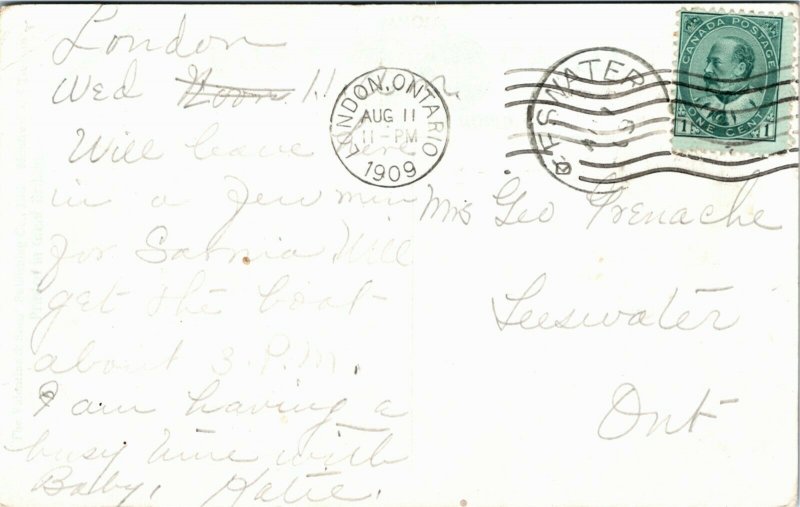 London
Wed Noon 11
Will leave here
in a few min
for Sarnia Will
get the boat
about 3 P.M.
I am having a
busy time with
Baby, Katie.
LONDON, ONTARIO
AUG 11
11-PM
1909
TEESWATER
CANADA POSTAGE
1 ONE CENT 1
Mrs Geo Grenache
Teeswater
Ont